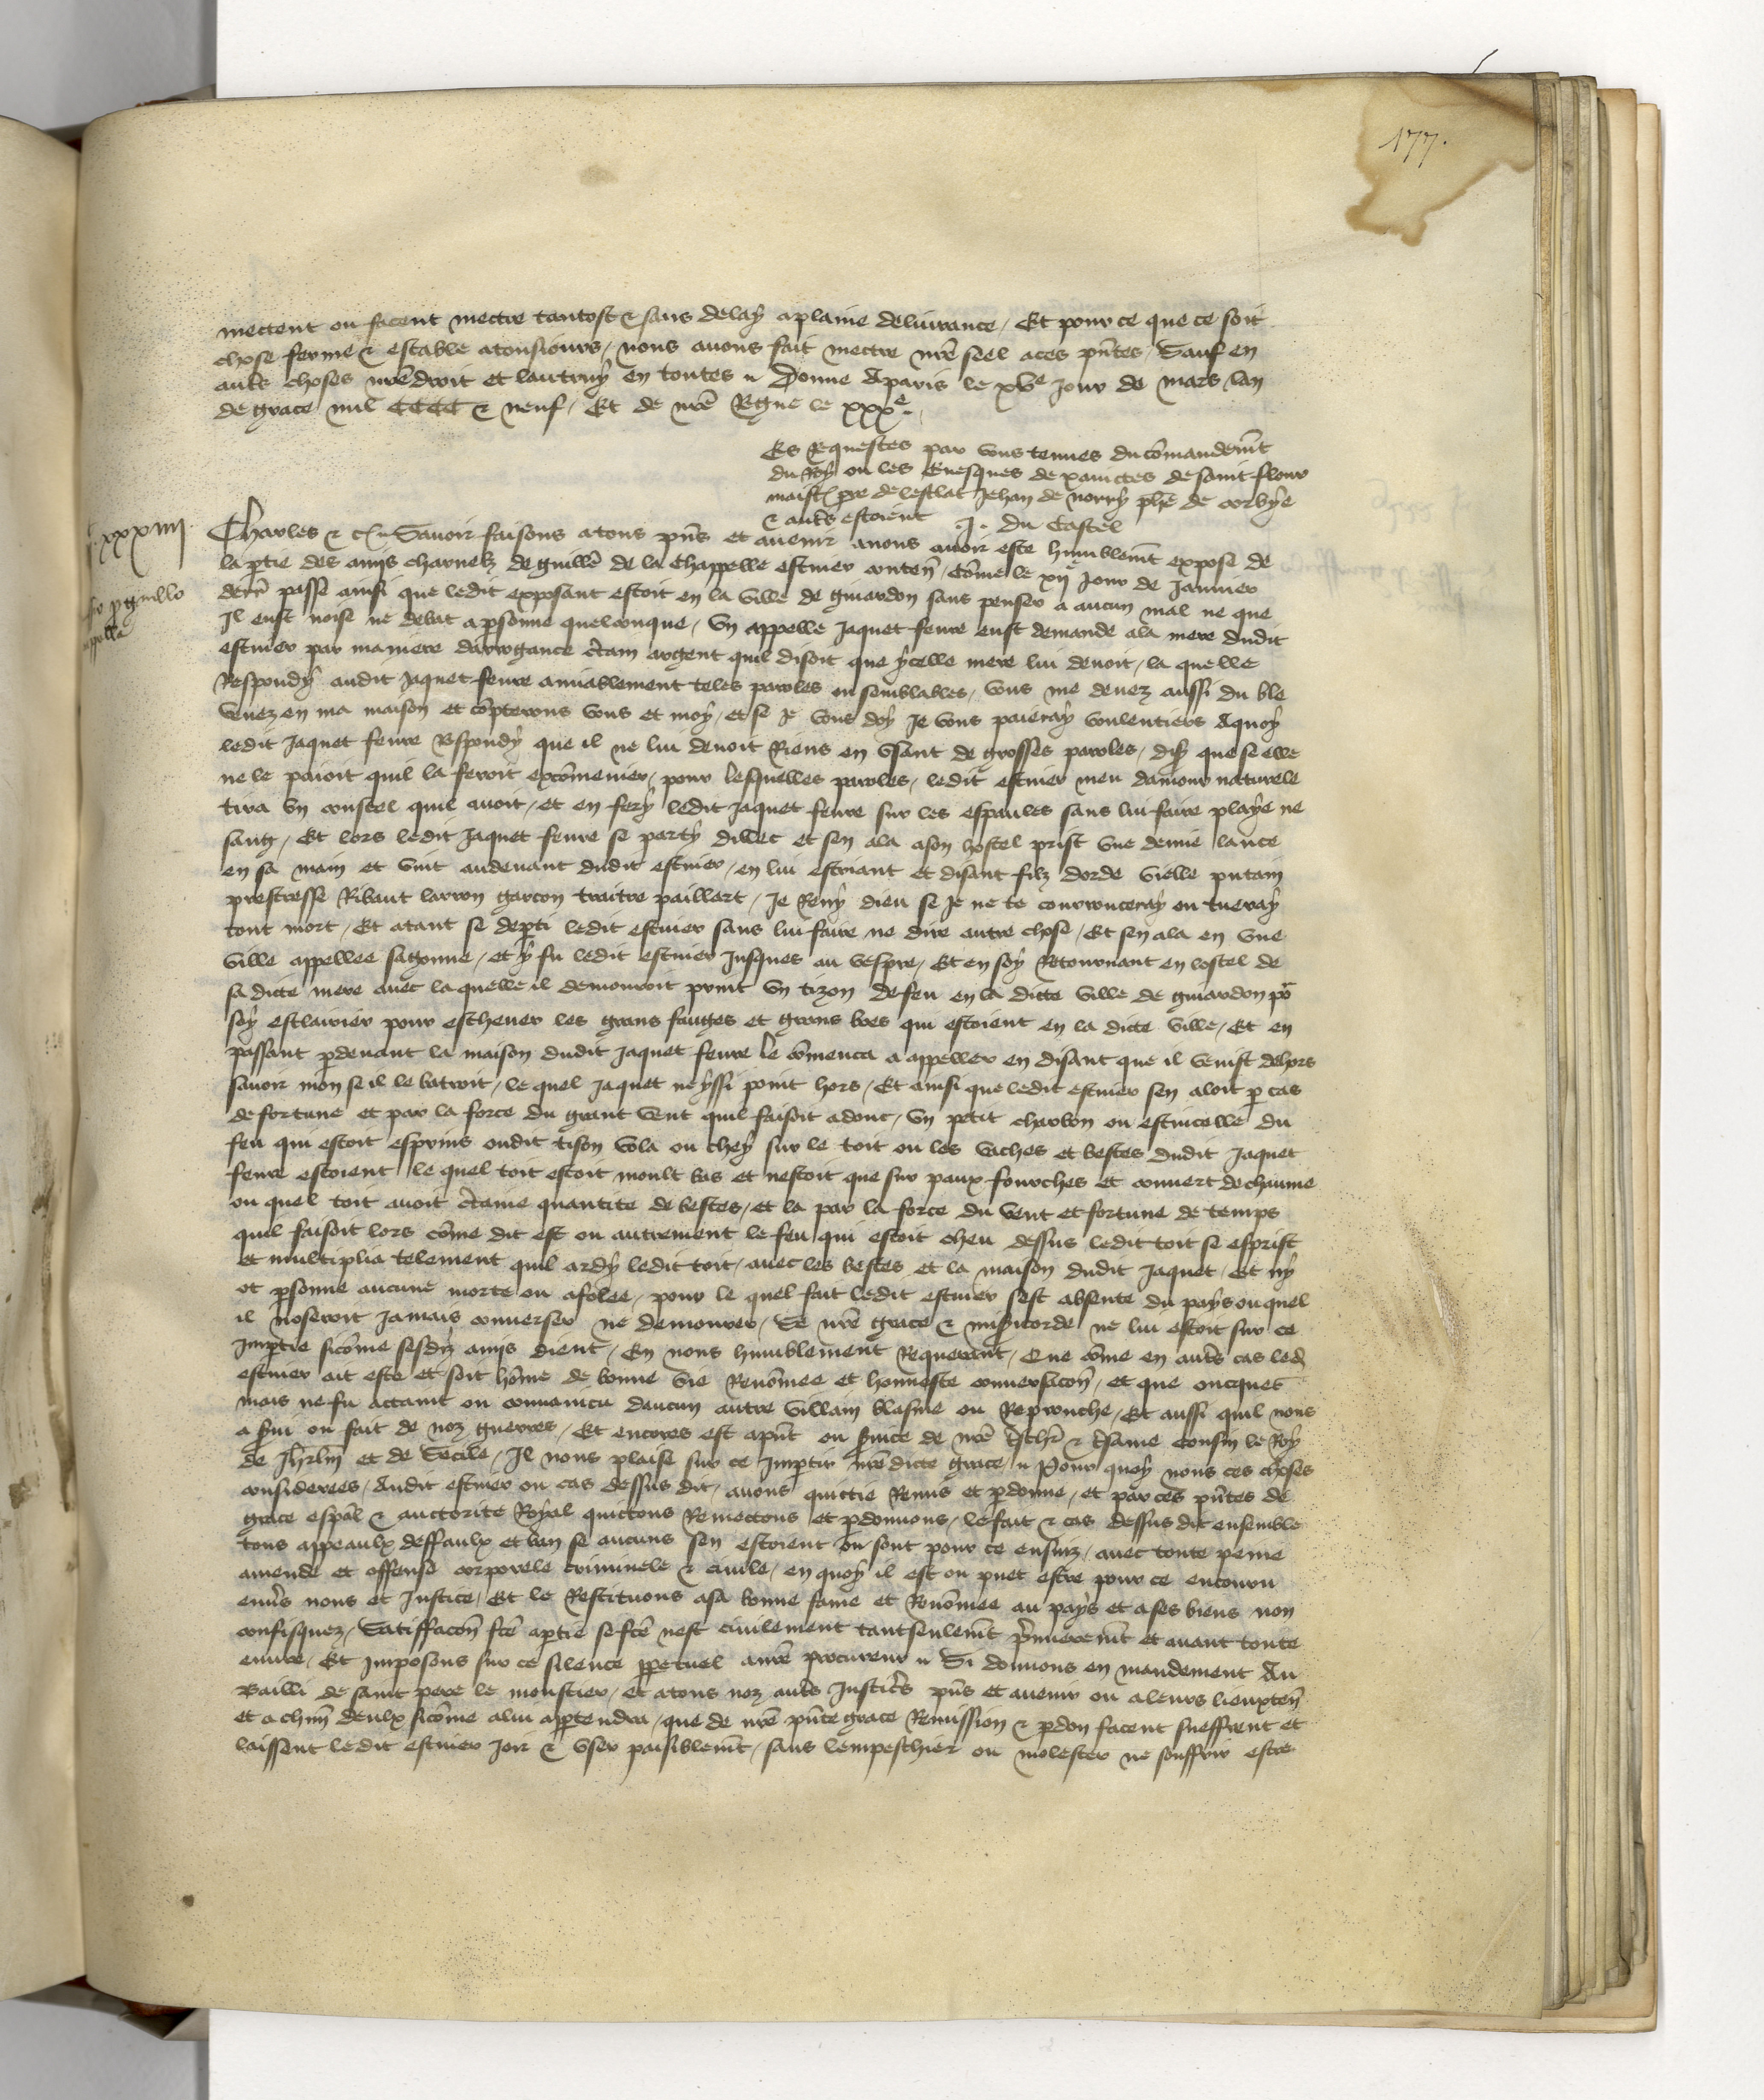 177.
mectent ou facent mectre tantost & sans delay a plaine deliurance / Et pour ce que ce soit
chose ferme & estable atousiours / nous auons fait mectre nre seel aces pntes / Sauf en
autres choses nre droit et lautruy en toutes Donne Aparis le xve Jour de mars lan
de grace mil CCCC & neuf / Et de nre Regne le xxxe
Es Requestes par vous tenues du comandemt
du Roy ou les Euesques de xainctes de saint flour
maistre pre de lesclat Jehan de norry phe de corbye
& autres estoient J. du Castel
xxxiiij
Charles & c Sauoir faisons atous pns et auenir anous auoir este humblemt expose de
la ptie des amis charnelz de guille de la Chappelle escuier conten Come le xije Jour de Januier
dern passe ainsi que ledit exposant estoit en la ville de guiardon sans penser a aucun mal ne que
Il eust noise ne debat apsonne quelconque / vn appelle Jaquet feure eust demande ala mere dudit
escuier par maniere darrogance ctain argent quil disoit que ycelle mere lui deuoit / la quelle
Respondy audit Jaquet feure amiablement teles paroles ou semblables / vous me deuez aussi du ble
venez en ma maison et copterons vous et moy / et se Je vous doy Je vous paieray voulentiers Aquoy
ledit Jaquet feure Respondy que il ne lui deuoit Riens en vsant de grosses paroles / dist que se elle
ne le paioit quil la feroit excomenier / pour lesquelles paroles / ledit escuier meu damour naturele
tira vn coustel quil auoit / et en fery ledit Jaquet feure sur les espaules sans lui faire playe ne
sang / Et lors ledit Jaquet feure se party dillec et sen ala a son hostel prist vne demie lance
en sa main et vint audeuant dudit escuier / en lui escriant et disant filz dorde vielle putain
prestresse Ribaut larron garcon traitre paillart / Je Reny dieu se Je ne te courrouceray ou tueray
tout mort / Et atant se depti ledit escuier sans lui faire ne dire autre chose / Et sen ala en vne
ville appellee sagonne / et y fu ledit escuier Jusques au vespre / Et en soy Retournant en lostel de
sa dicte mere auec laquelle il demouroit print vn tizon de feu en la dicte ville de guiardon po
soy esclairier pour escheuer les grans fanges et grans boes qui estoient en la dicte ville / Et en
passant pdeuant la maison dudit Jaquet feure le comenca a appeller en disant que il venist dehors
sauoir mon se il le batroit / le quel Jaquet ne yssi point hors / Et ainsi que ledit escuier sen aloit p cas
de fortune et par la force du grant vent quil faisoit adonc / vn petit charbon ou estincelle du
feu qui estoit esprins oudit tison vola ou chey sur le toit ou les vaches et bestes dudit Jaquet
feure estoient le quel toit estoit moult bas et nestoit que sur paux fourches et couuert de chaume
ou quel toit auoit ctaine quantite de bestes / et la par la force du vent et fortune de temps
quil faisoit lors come dit est ou autrement le feu qui estoit cheu dessus ledit toit se esprist
et multiplia telement quil ardy ledit toit / auec les bestes et la maison dudit Jaquet / Et ny
ot psonne aucune morte ou afolee / pour le quel fait ledit escuier sest absente du pays ouquel
il noseroit Jamais conuerser ne demourer / Se nre grace & misicorde ne lui estoit sur ce
Imptie sicome sesdiz amis dient / En nous humblement Requerant / Que come en autres cas led
escuier ait este et soit home de bonne vie Renomee et honneste conuersacon / et que oncques
mais ne fu actaint ou conuaincu daucun autre villain blasme ou Reprouche / Et aussi quil nous
a sui ou fait de noz guerres / Et encores est apnt ou suice de nre tschr & tsame Cousin le Roy
de Jhrlm et de Secile / Il nous plaise sur ce Imptir nre dicte grace Pour quoy nous ces choses
considerees / Audit escuier ou cas dessus dit / auons quictie Remis et pdonne / et par ces pntes de
grace espal & auctorite Royal quictons Remectons et pdonnons / le fait & cas dessus dit ensemble
tous appeaulx deffaulx et ban se aucuns sen estoient ou sont pour ce ensuiz / auec toute peine
amende et offense corporele criminele & ciuile / en quoy il est ou puet estre pour ce encouru
enuers nous et Justice / Et le Restituons asa bonne fame et Renomee au pays et ases biens non
confisquez / Satiffacon fce aptie se fce nest ciuilement tantseulemt pmieremt et auant toute
euure / Et Imposons sur ce silence ppetuel anre procureur Si donnons en mandement Au
Bailli de saint pere le moustier / et atous noz autres Justices pns et auenir ou aleurs lieuxten
et a chun deulx sicome alui aptendra / que de nre pnte grace Remission & pdon facent sueffrent et
laissent ledit escuier Joir & vser paisiblemt / sans lempeschier ou molester ne souffrir estre